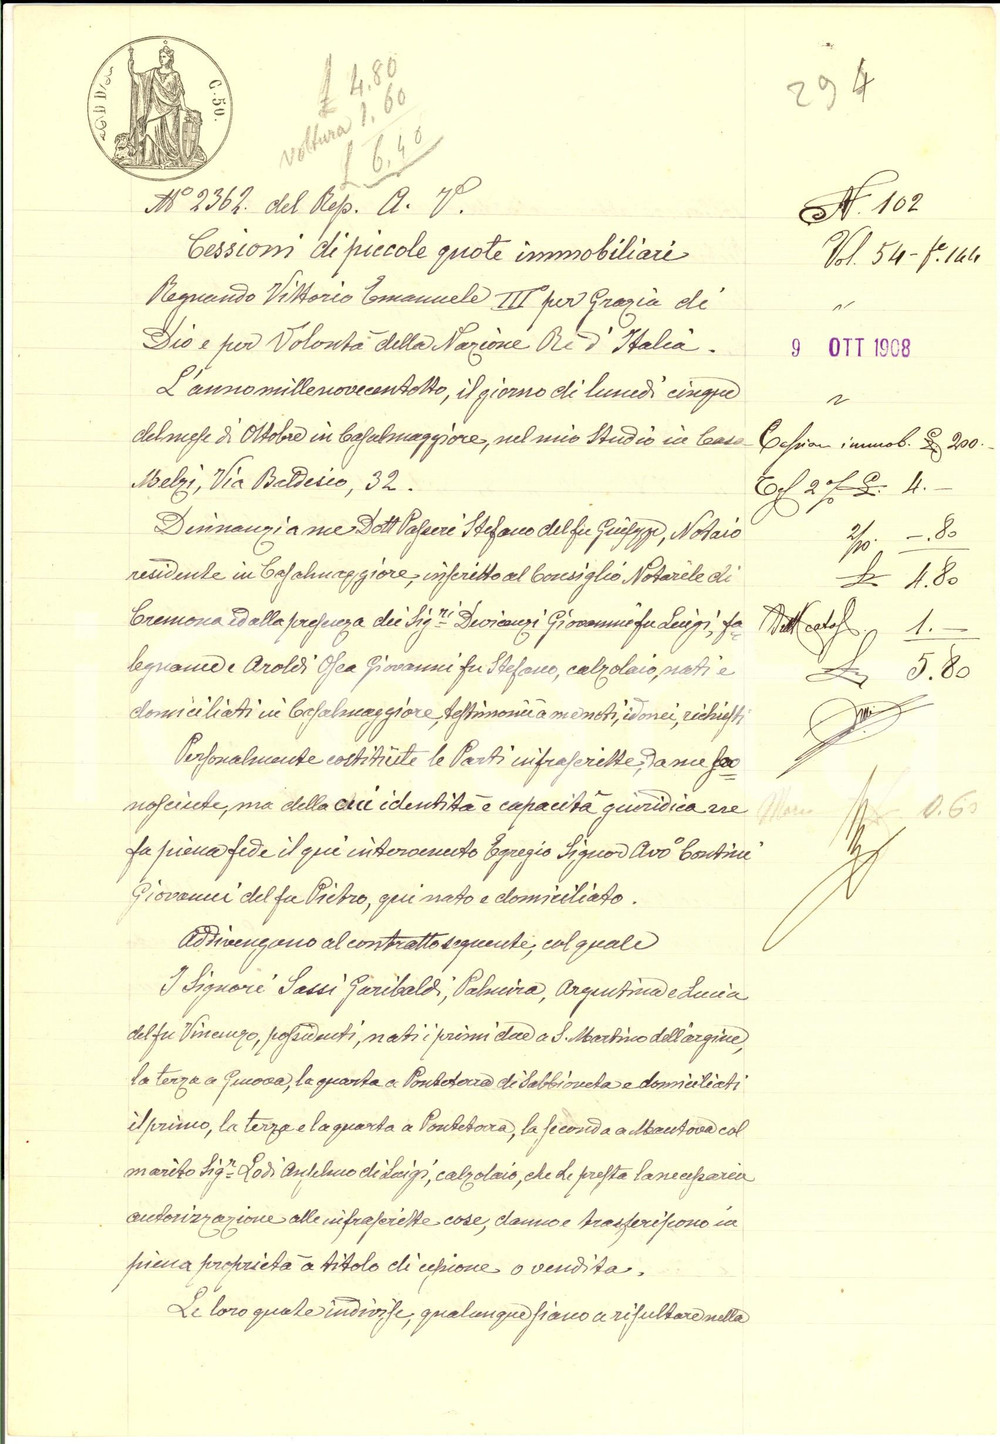 C. 50.
£ 4.80
voltura 1.60
£ 6.40
294
N° 2362. del Rep. A. V.
Cessioni di piccole quote immobiliari
Regnando Vittorio Emanuele III° per Grazia di
Dio e per Volontà della Nazione Re d'Italia.
L'anno millenovecentotto, il giorno di lunedì cinque
del mese di Ottobre in Casalmaggiore, nel mio Studio in Casa
Melzi, Via Baldesio, 32.
Dinnanzi a me Dott Passeri Stefano del fu Giuseppe, Notaio
residente in Casalmaggiore, inscritto al Consiglio Notarile di
Cremona ed alla presenza dei Sig.ri Devicenzi Giovanni fu Luigi, fa=
legname e Araldi Osea Giovanni fu Stefano, calzolaio, nati e
domiciliati in Casalmaggiore, testimonii a me noti, idonei, richiesti
Personalmente costituite le Parti infrascritte, da me sco=
nosciute, ma della cui identità e capacità giuridica me
fa piena fede il qui intervenuto Egregio Signor Avv° Contini
Giovanni del fu Pietro, qui nato e domiciliato.
Addivengono al contratto seguente, col quale
I Signori Sassi Garibaldi, Palmira, Argentina e Lucia
del fu Vincenzo, possidenti, nati i primi due a S. Martino dell'argine,
la terza a Genova, la quarta a Ponteterra di Sabbioneta e domiciliati
il primo, la terza e la quarta a Ponteterra, la seconda a Mantova col
marito Sig.r Lodi Anselmo di Luigi, calzolaio, che le presta la necessaria
autorizzazione alle infrascritte cose, danno e trasferiscono in
piena proprietà a titolo di cessione o vendita.
Le loro quote indivise, qualunque siano a risultare nella
N. 102
Vol. 54 - f.° 144
"
9 OTT 1908
"
Cession immob. £ 200.-
2% £. 4.-
2/10. -.80
£ 4.80
1.-
£ 5.80
0.60